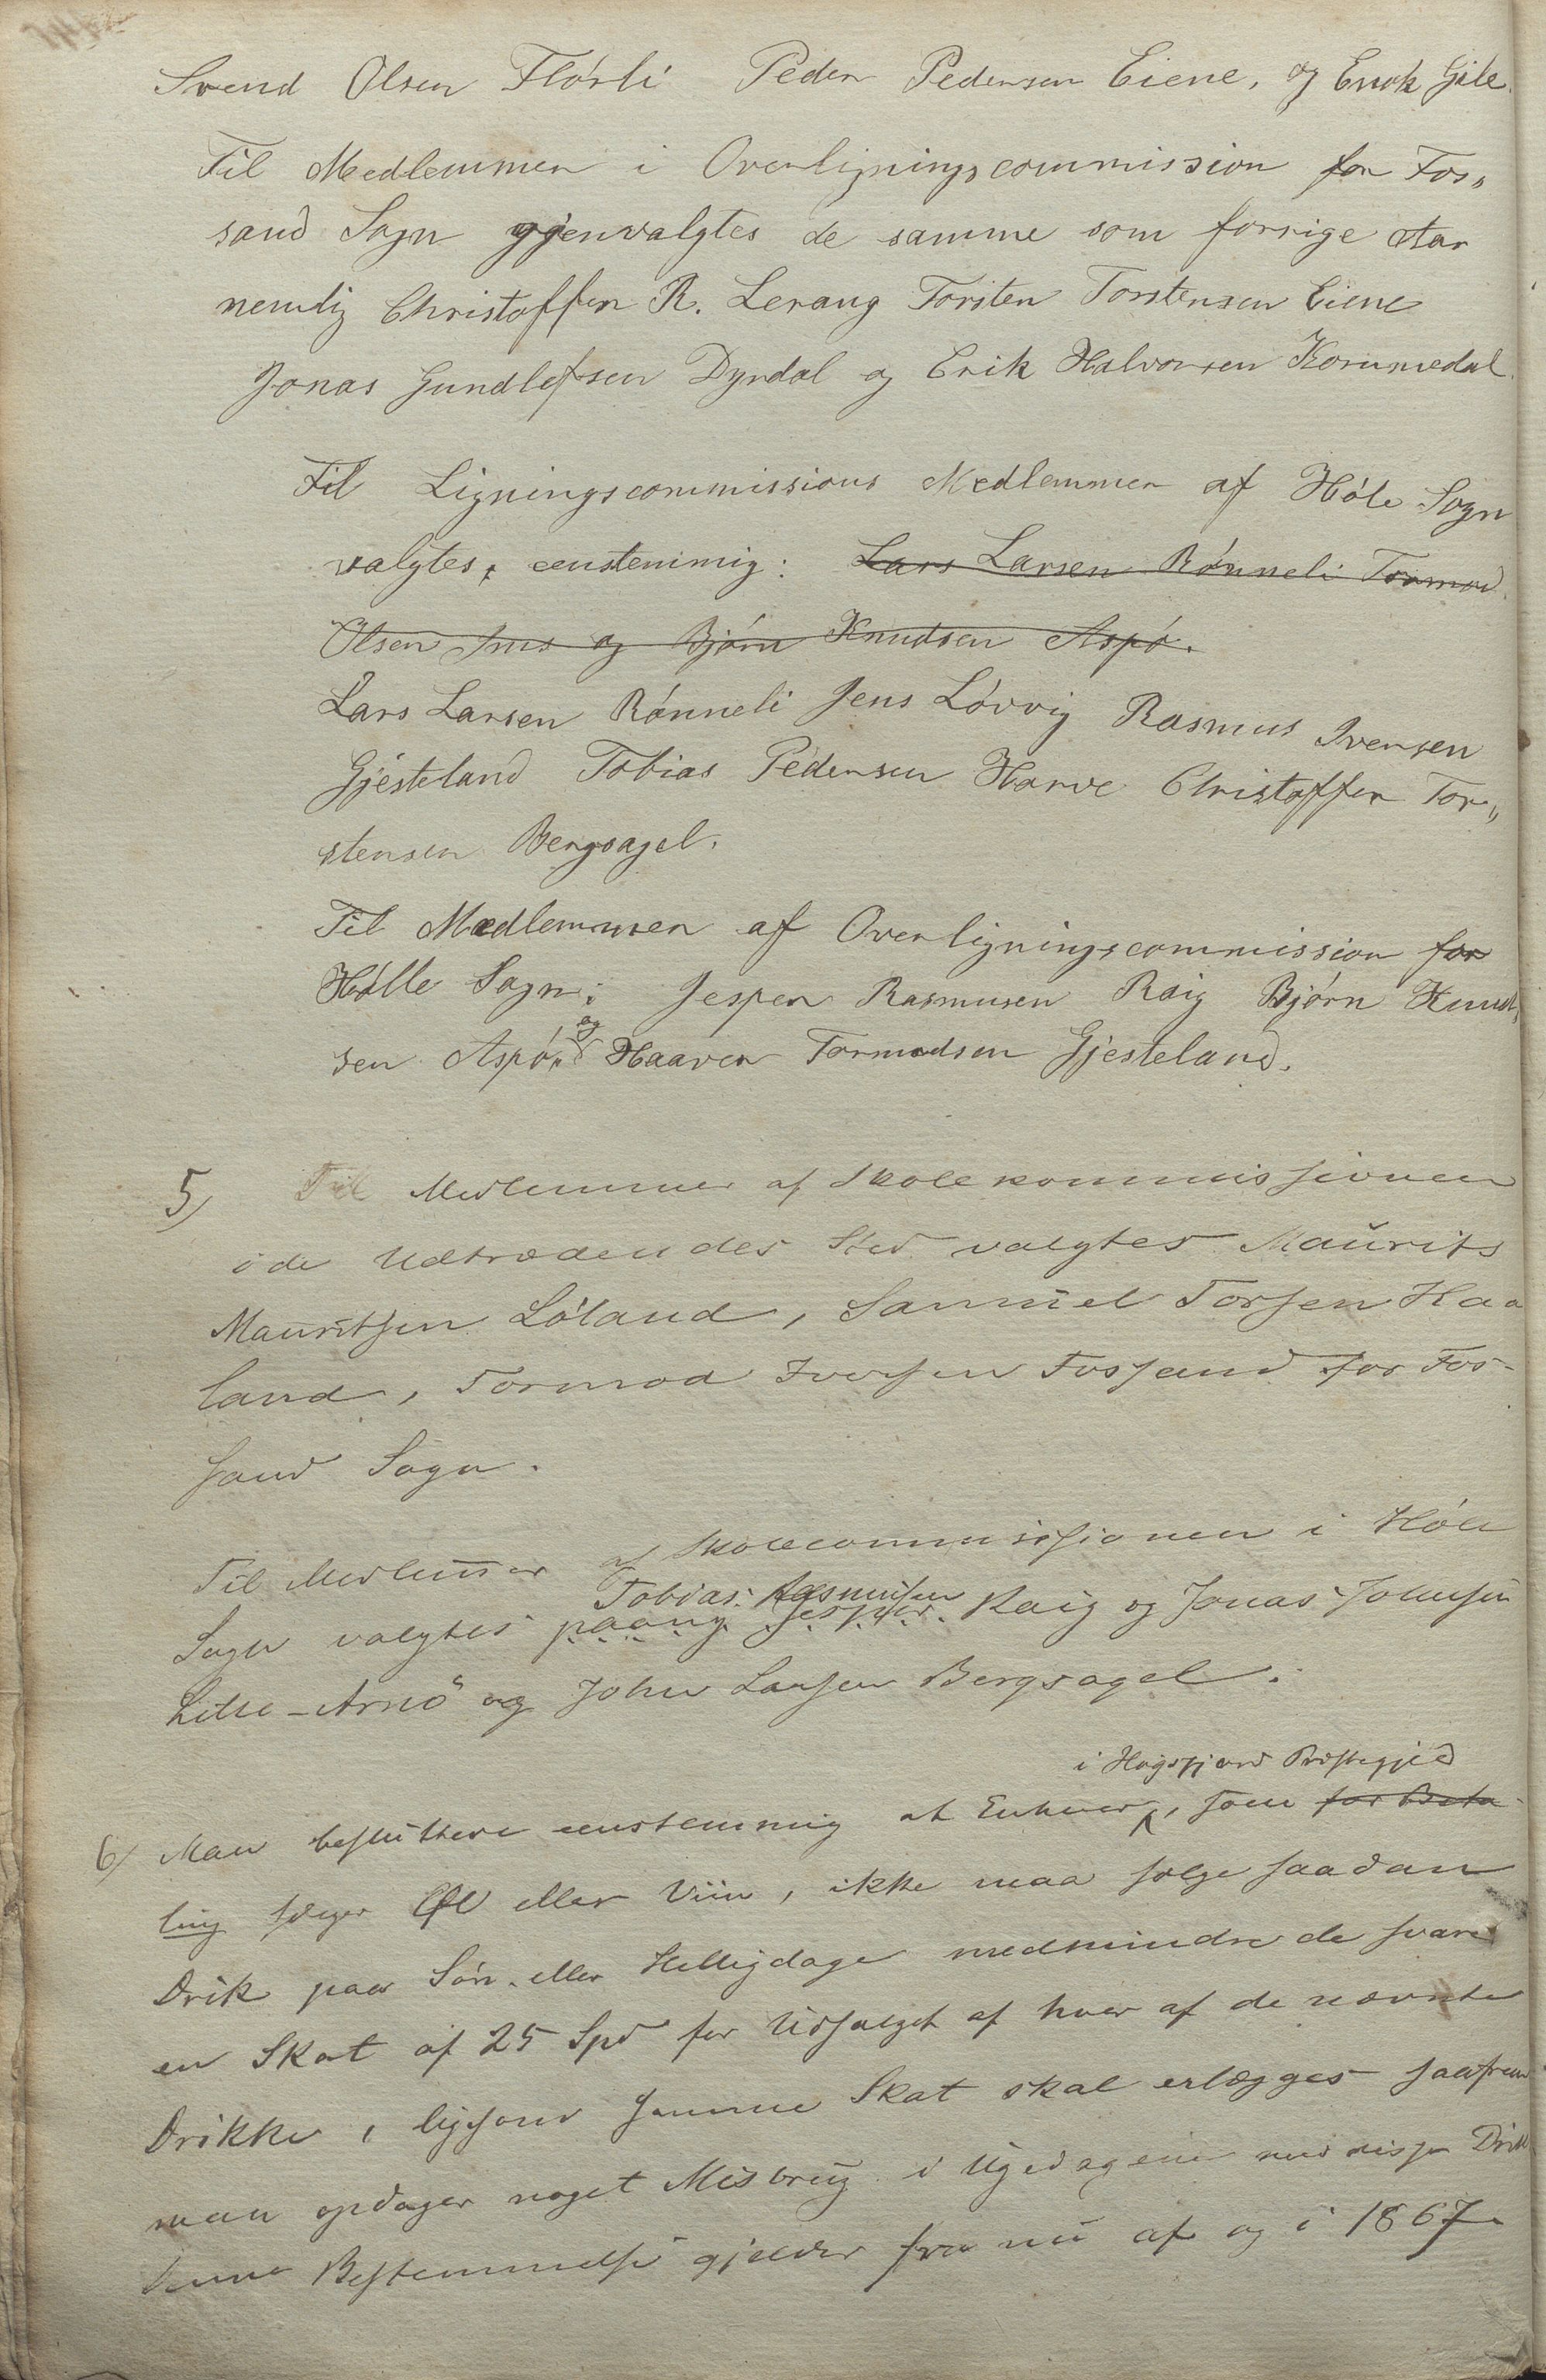 Svend Olsen Flórli Peder Pedersen Eiene, og Enok Gile.
Til Medlemmer i Overligningscommission for Fos„
sand Sogn gjenvalgtes de samme som forrige Aar
nemlig Christoffer R. Lerang Torsten Torstensen Eiene
Jonas Gundlefsen Dyrdal og Erik Halvorsen Kommedal.
Til Ligningscommissions Medlemmer af Hóle Sogn
valgtes, eenstemmig: Lars Larsen Rónneli Tormod
Olsen Ims og Bjórn Knudsen Aspó.
Lars Larsen Rónneli Jens Lóvvig Rasmus Iversen
Gjesteland Tobias Pedersen Harve Christoffer Tor„
stensen Bergsagel.
Til Medlemmer af Overligningscommission for
Hólle Sogn: Jesper Rasmusen Raig Bjórn Knud„
sen Aspó, og Haaver Tormodsen Gjesteland.
5) Til Medlemmer af Skolekommissionen
i de Udtrædendes Sted valgtes Maurits
Mauritsen Lóland, Samuel Torsen Haa
land, Tormod Iversen Fossand for Fos-
sand Sogn.
Til Medlem̅er af Skolecommissionen i Hóle
Tobias Rasmusen
Sogn valgtes paany Jesper Raig og Jonas Johnsen
Litle-Arnö og John Larsen Bergsagel.
i Høgsfjord Præstegjeld
6) Man besluttede eenstemmig at Enhver, som for Beta
ling sælger Øl eller Viin, ikke maa sælge saadan
Drik paa Søn- eller Helligdage medmindre de svare
en Skat af 25 Spd for Udsalget af hver af de nævnte
Drikke, ligesom samme Skat skal erlægges saafremt
man opdager noget Misbrug i Ugedagene med disse Drik
Denne Bestemmelse gjelder fra nu af og i 1867.